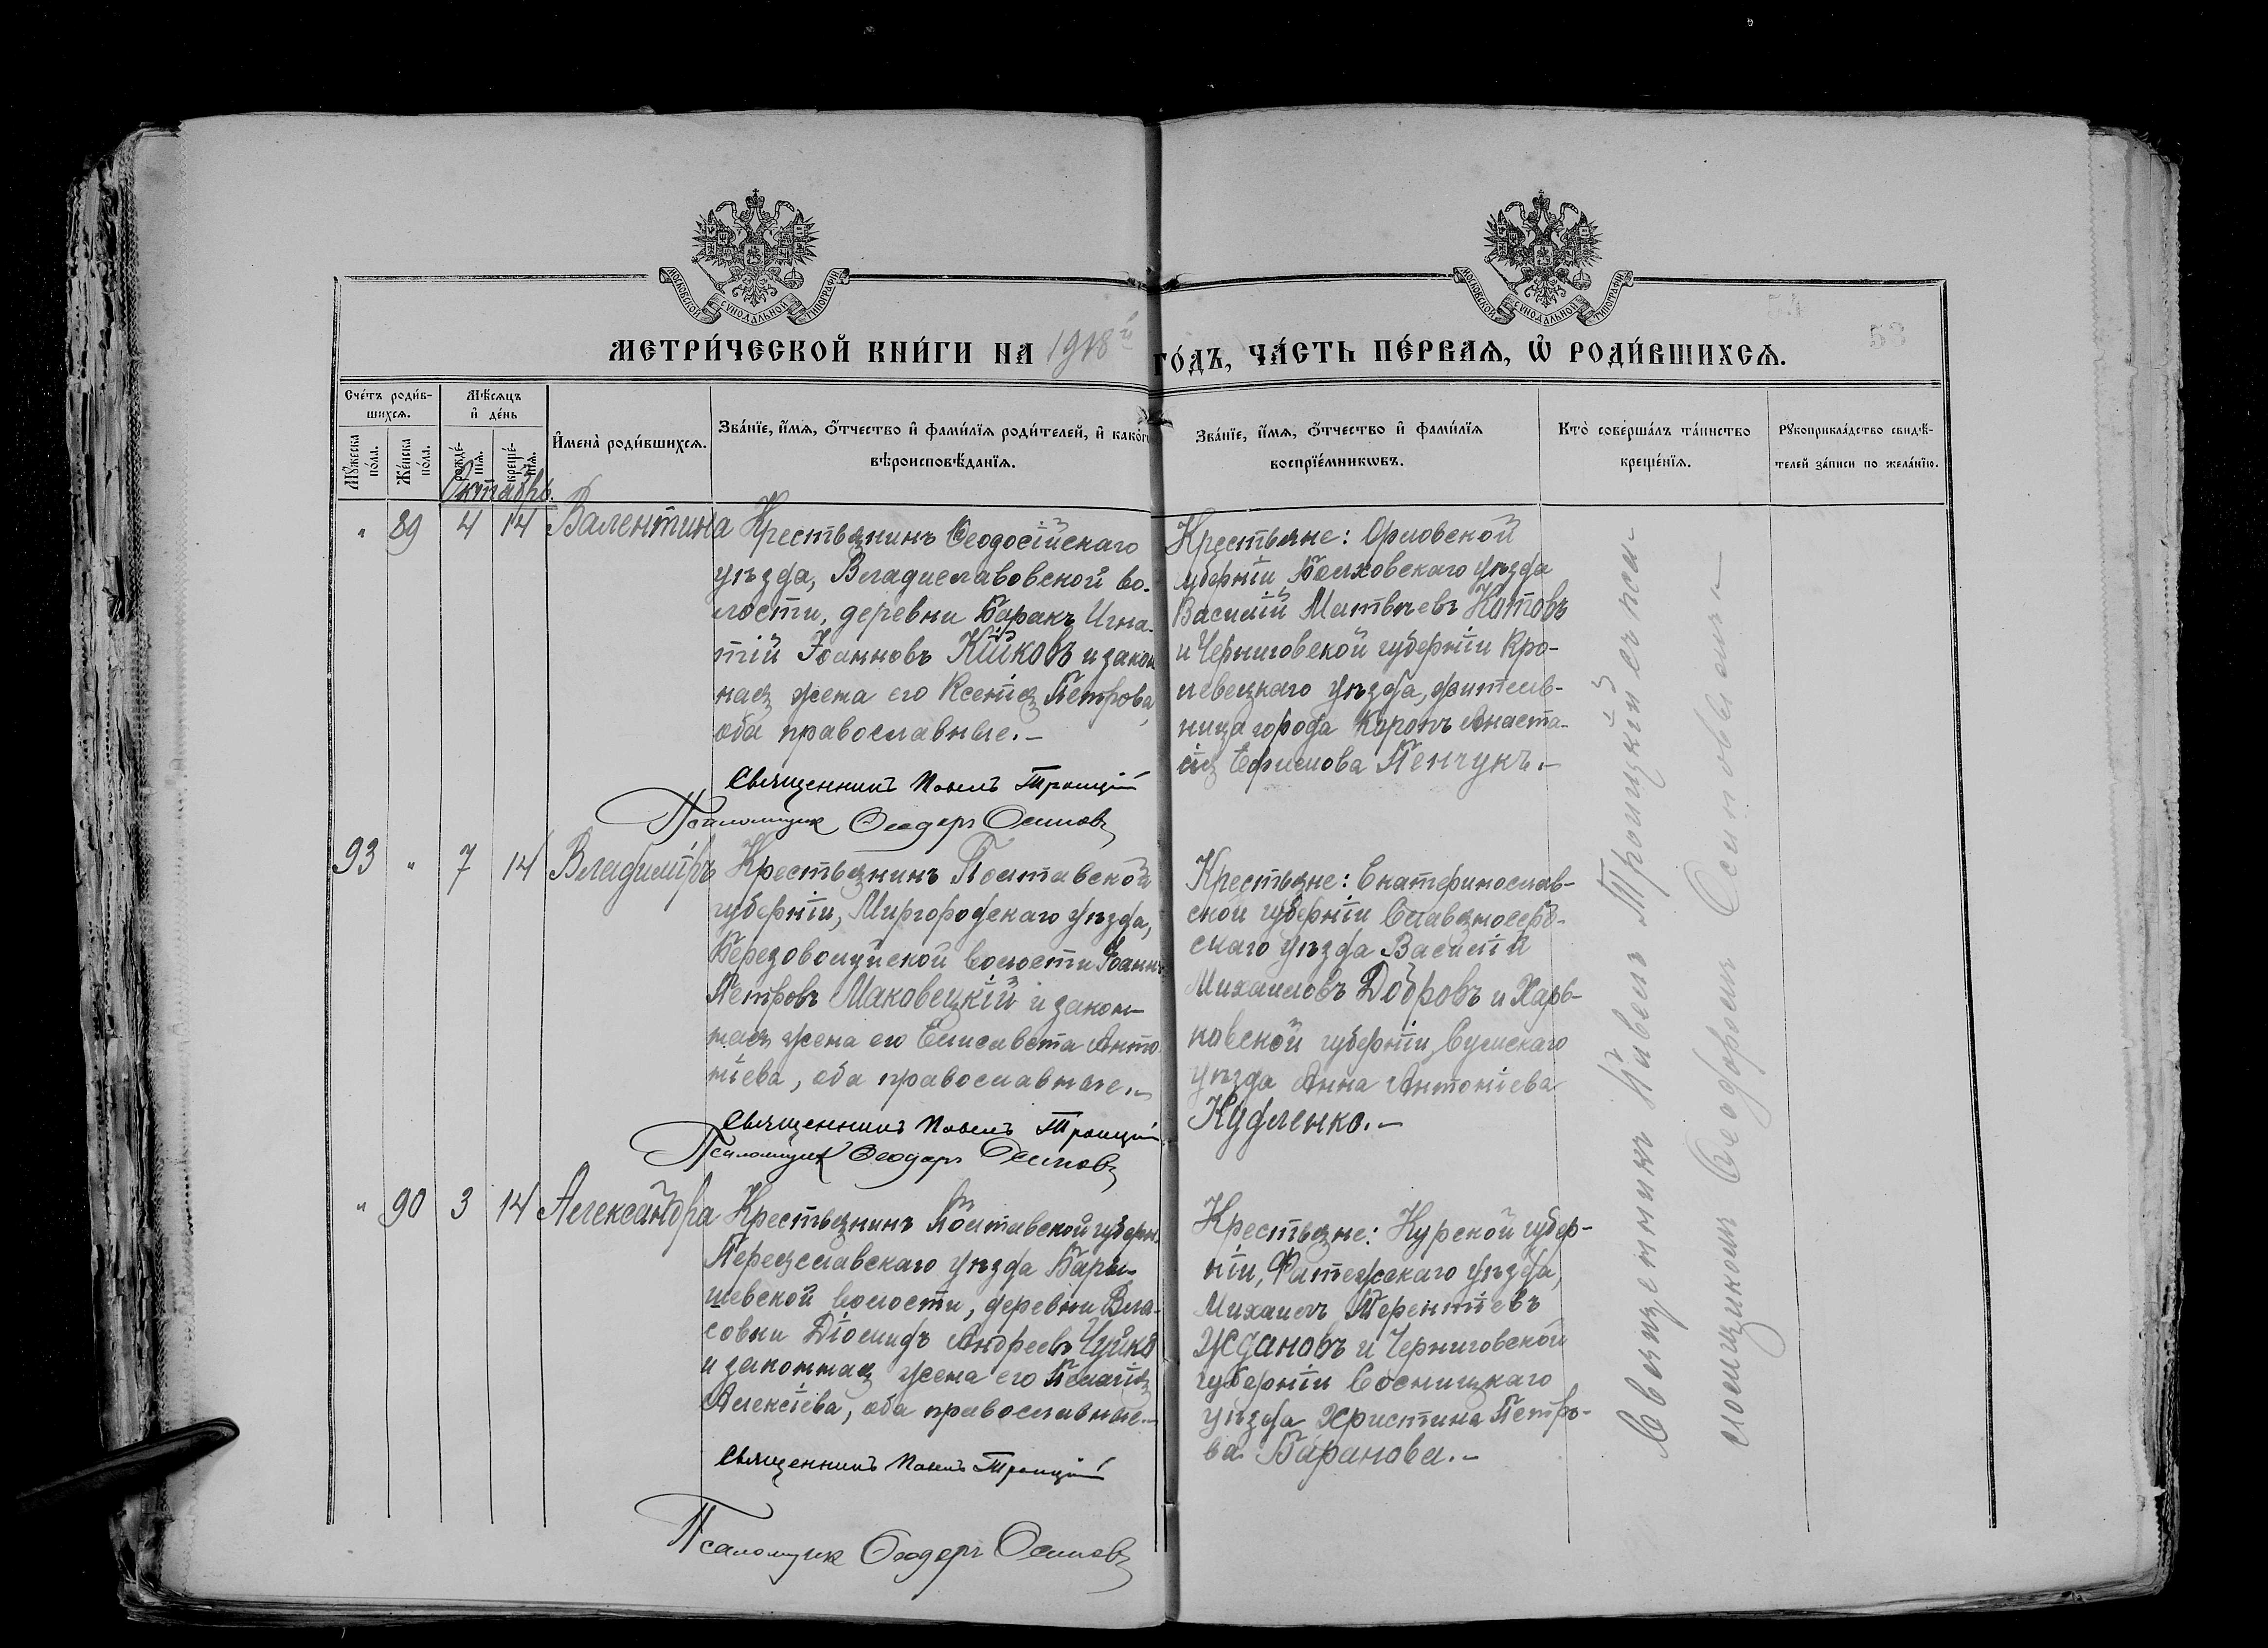 МОСКОВСКОЙ СѴНОДАЛЬНОЙ ТИПОГРАФІИ
МОСКОВСКОЙ СѴНОДАЛЬНОЙ ТИПОГРАФІИ
53
МЕТРИ́ЧЕСКОЙ КНИ́ГИ НА 1918й ГО́ДЪ, ЧА́СТЬ ПЕ́РВАѦ, Ѽ РОДИ́ВШИХСѦ.
Сче́тъ роди́в-
шихсѧ.
Мꙋ́жеска по́ла.
Же́нска по́ла.
Мѣ́сѧцъ
и҆ де́нь
рожде́-
нїѧ.
креще́-
нїѧ.
И҆мена̀ роди́вшихсѧ.
Зва́нїе, и҆́мѧ, ѻ҆́тчество и҆ фами́лїѧ роди́телей, и҆ како́гѡ
вѣроисповѣ́данїѧ.
Зва́нїе, и҆́мѧ, ѻ҆́тчество и҆ фами́лїѧ
воспрїе́мникѡвъ.
Кто̀ соверша́лъ та́инство
креще́нїѧ.
Рꙋкоприкла́дство свидѣ́-
телей за́писи по жела́нїю.
Октябрь.
" 89 4 14 Валентина
Крестьянинъ Ѳеодосійскаго
уѣзда, Владиславовской во-
лости, деревни Баракъ Игна-
тій Іоанновъ Кійковъ и закон
ная жена его Ксенія Петрова,
оба православные.-
Священникъ Павелъ Троицкій
Псаломщик Ѳеодоръ Осиповъ
Крестьяне: Орловской
губерніи Болховскаго уѣзда
Василій Матвѣевъ Котовъ
и Черниговской губерніи Кро-
левецкаго уѣзда, жительни-
ница города Коропъ Анаста-
сія Ефимова Пенчукъ.-
93 " 7 14 Владиміръ
Крестьянинъ Полтавской
губерніи, Миргородскаго уѣзда,
Березоволуцкой волости Іоаннъ
Петровъ Маковецкій и закон-
ная жена его Елисавета Анто
ніева, оба православные.-
Священникъ Павелъ Троицкій
Псаломщик Ѳеодоръ Осиповъ
Крестьяне: Екатеринослав-
ской губерніи Славяносерб-
скаго уѣзда Василій
Михаиловъ Добровъ и Харь-
ковской губерніи, Сумскаго
уѣзда Анна Антоніева
Кудленко.-
" 90 3 14 Александра
Крестьянинъ Полтавской губерн.
Переяславскаго уѣзда Бары-
шевской волости, деревни Вла-
совки Діомидъ Андреевъ Чуйко
и законная жена его Пелагія
Алексіева, оба православные.-
Священникъ Павелъ Троицкій
Псаломщик Ѳеодоръ Осиповъ
Крестьяне: Курской губер-
ніи, Фатежскаго уѣзда,
Михаилъ Терентіевъ
Ждановъ и Черниговской
губерніи Сосницкаго
уѣзда Христина Петро-
ва Баранова.-
Священникъ Павелъ Троицкій съ пса-
ломщикомъ Ѳеодоромъ Осиповымъ.-